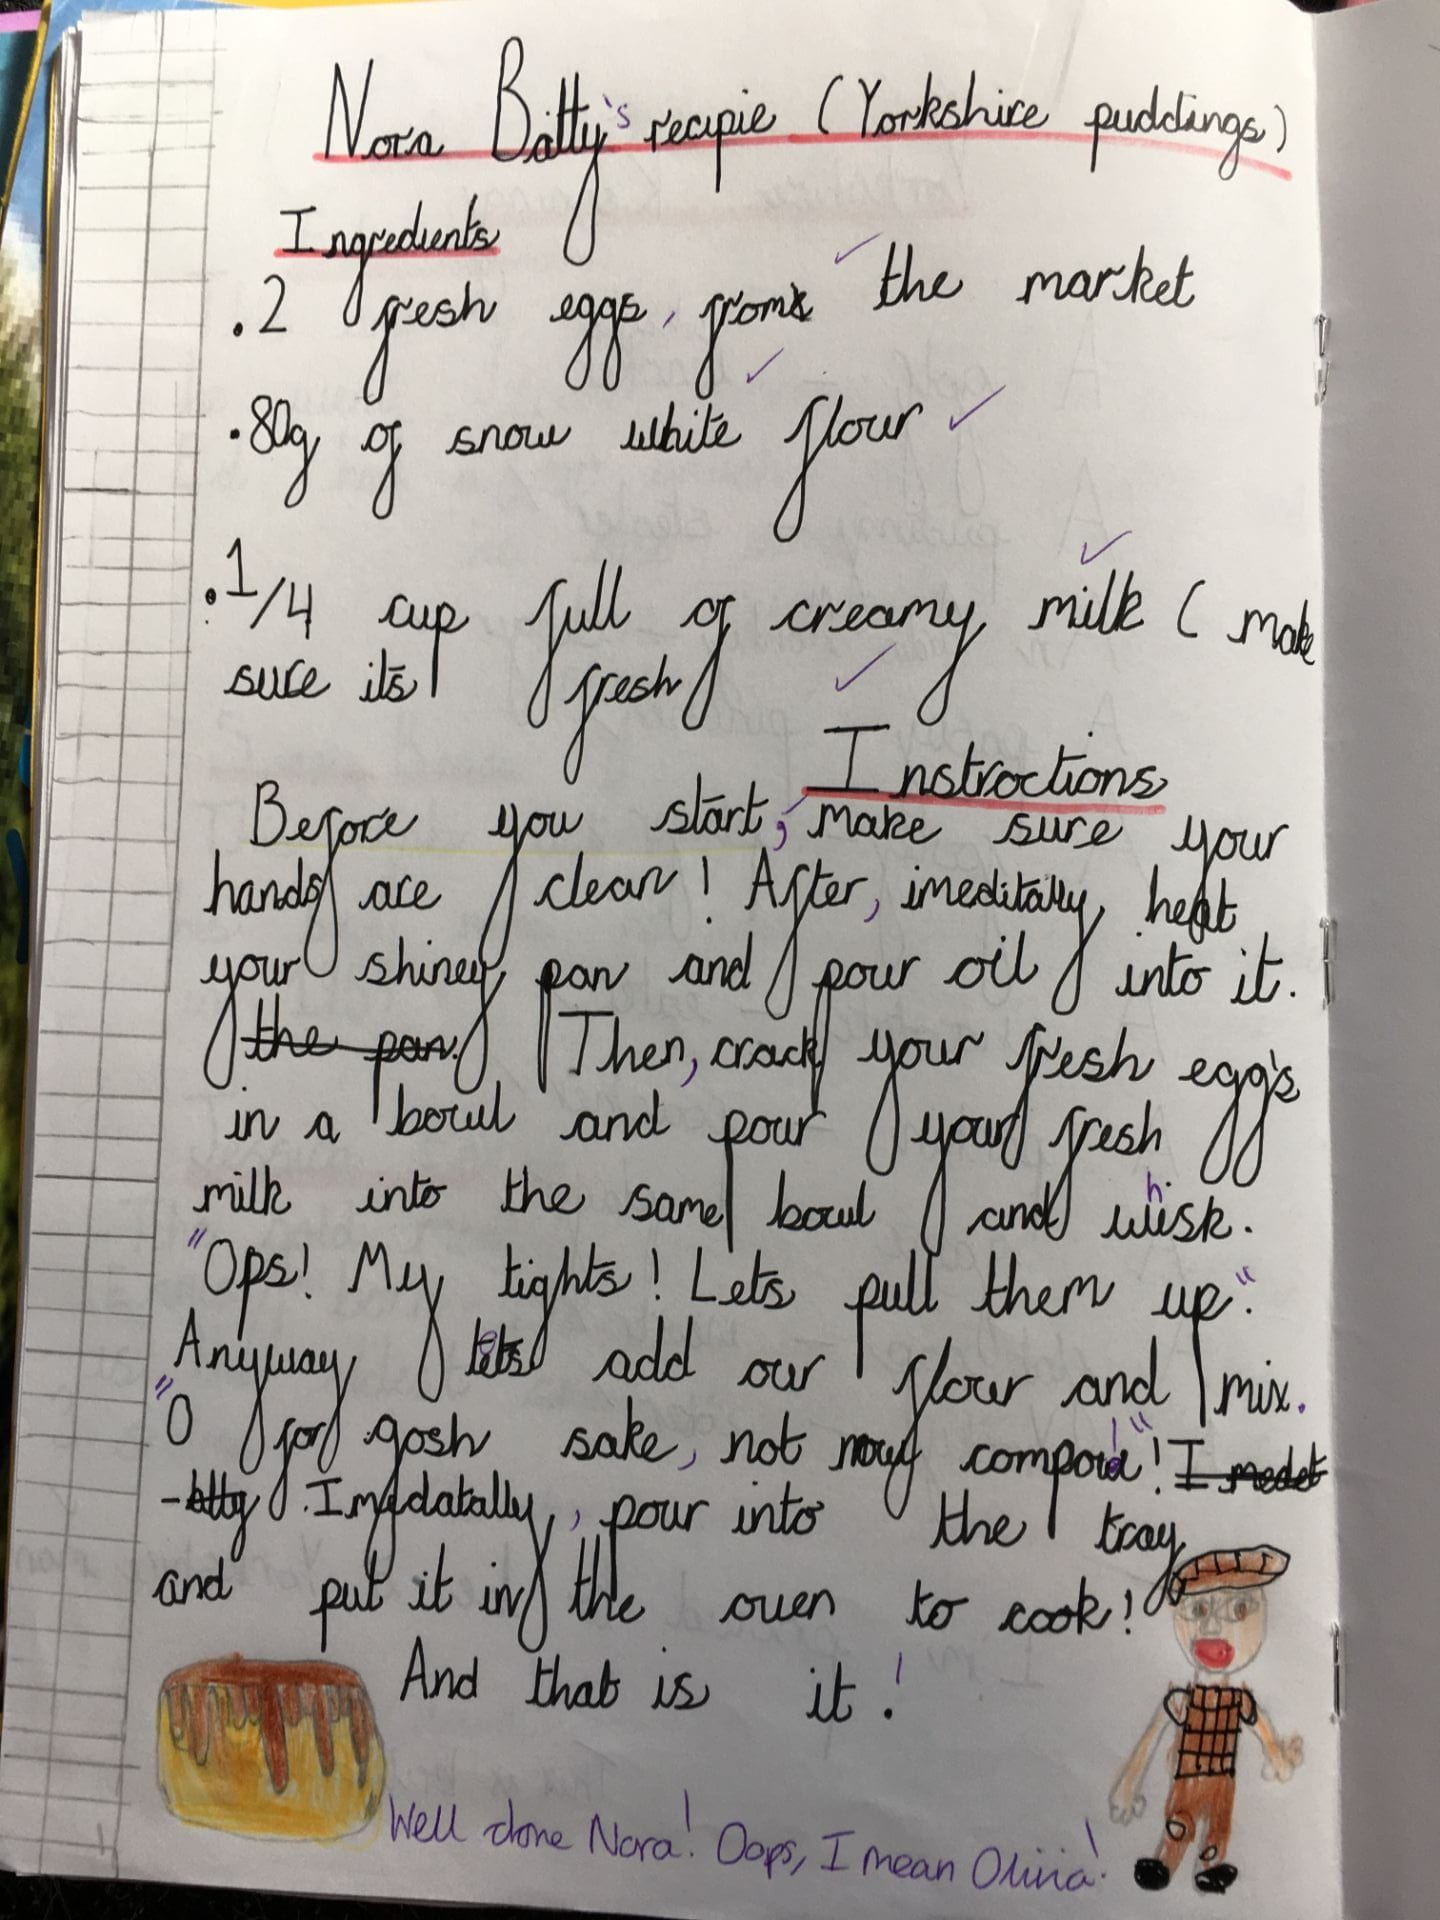 Nora Batty's recipie (Yorkshire puddings)
Ingredients
.2 fresh eggs, from the market
.80g of snow white flour
.1/4 cup full of creamy milk ( make
sure its fresh
Instroctions
Before you start, make sure your
hands are clean! After, imeditally, heat
your shiney pan and pour oil into it.
the pan. Then, crack your fresh eggs
in a bowl and pour your fresh
milk into the same bowl and whisk.
"Ops! My tights! Lets pull them up."
Anyway lets add our flour and mix.
"O for gosh sake, not now compo!"! I medet
-btty Imedatally, pour into the tray
and put it in the oven to cook!
And that is it!
Well done Nora! Oops, I mean Olivia!